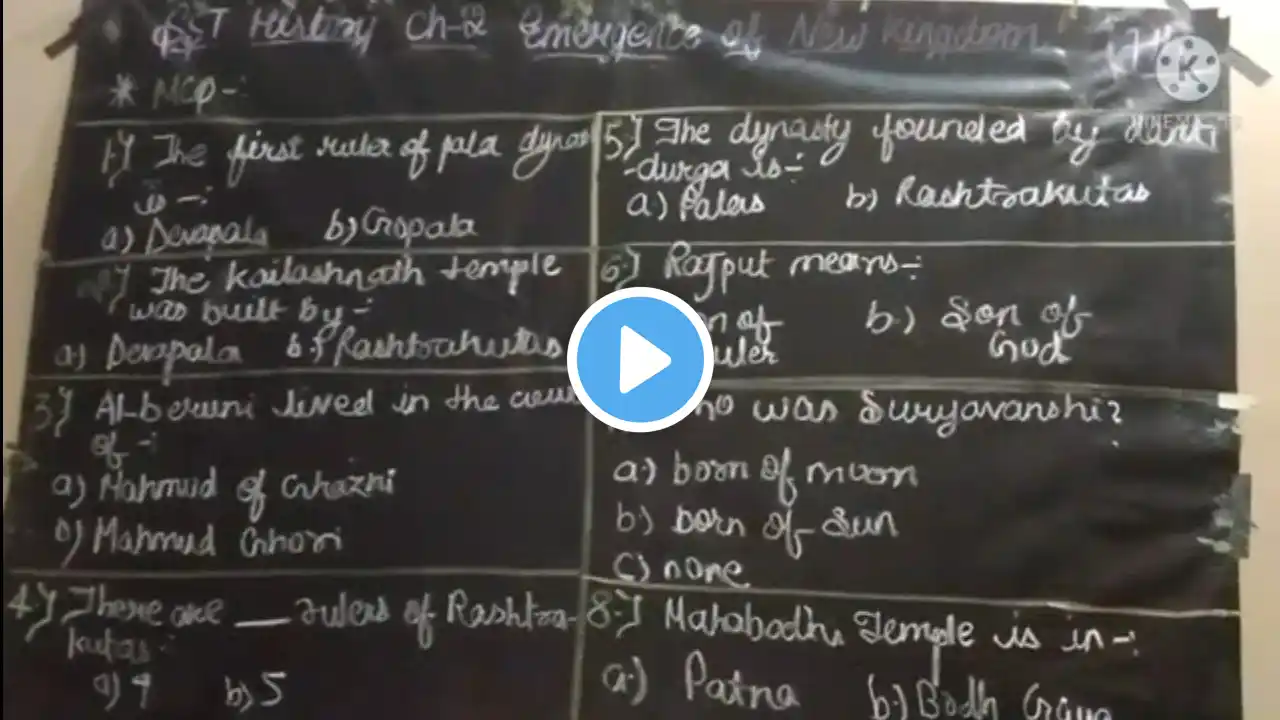 SST History Ch-2 Emergence of New Kingdom
* MCQ-:
1} The first ruler of pala
is -:
a) Devapala b) Gopala
2} The Kailashnath temple
was built by -:
a.) Devapala b.) Rashtrakutas
3} Al-beruni lived in the
of -:
a) Mahmud of Ghazni
b) Mahmud Ghori
4} There are __ rulers of Rashtra-
kutas -:
a) 4 b) 5
5.} The dynasty founded by
-durga is -:
a.) Palas b.) Rashtrakutas
6.} Rajput means -:
of b.) Son of
God
was Suryavanshi?
a.) born of moon
b) born of Sun
c) none
8.} Mahabodhi Temple is in -:
a.) Patna b.) Bodh Gaya
K